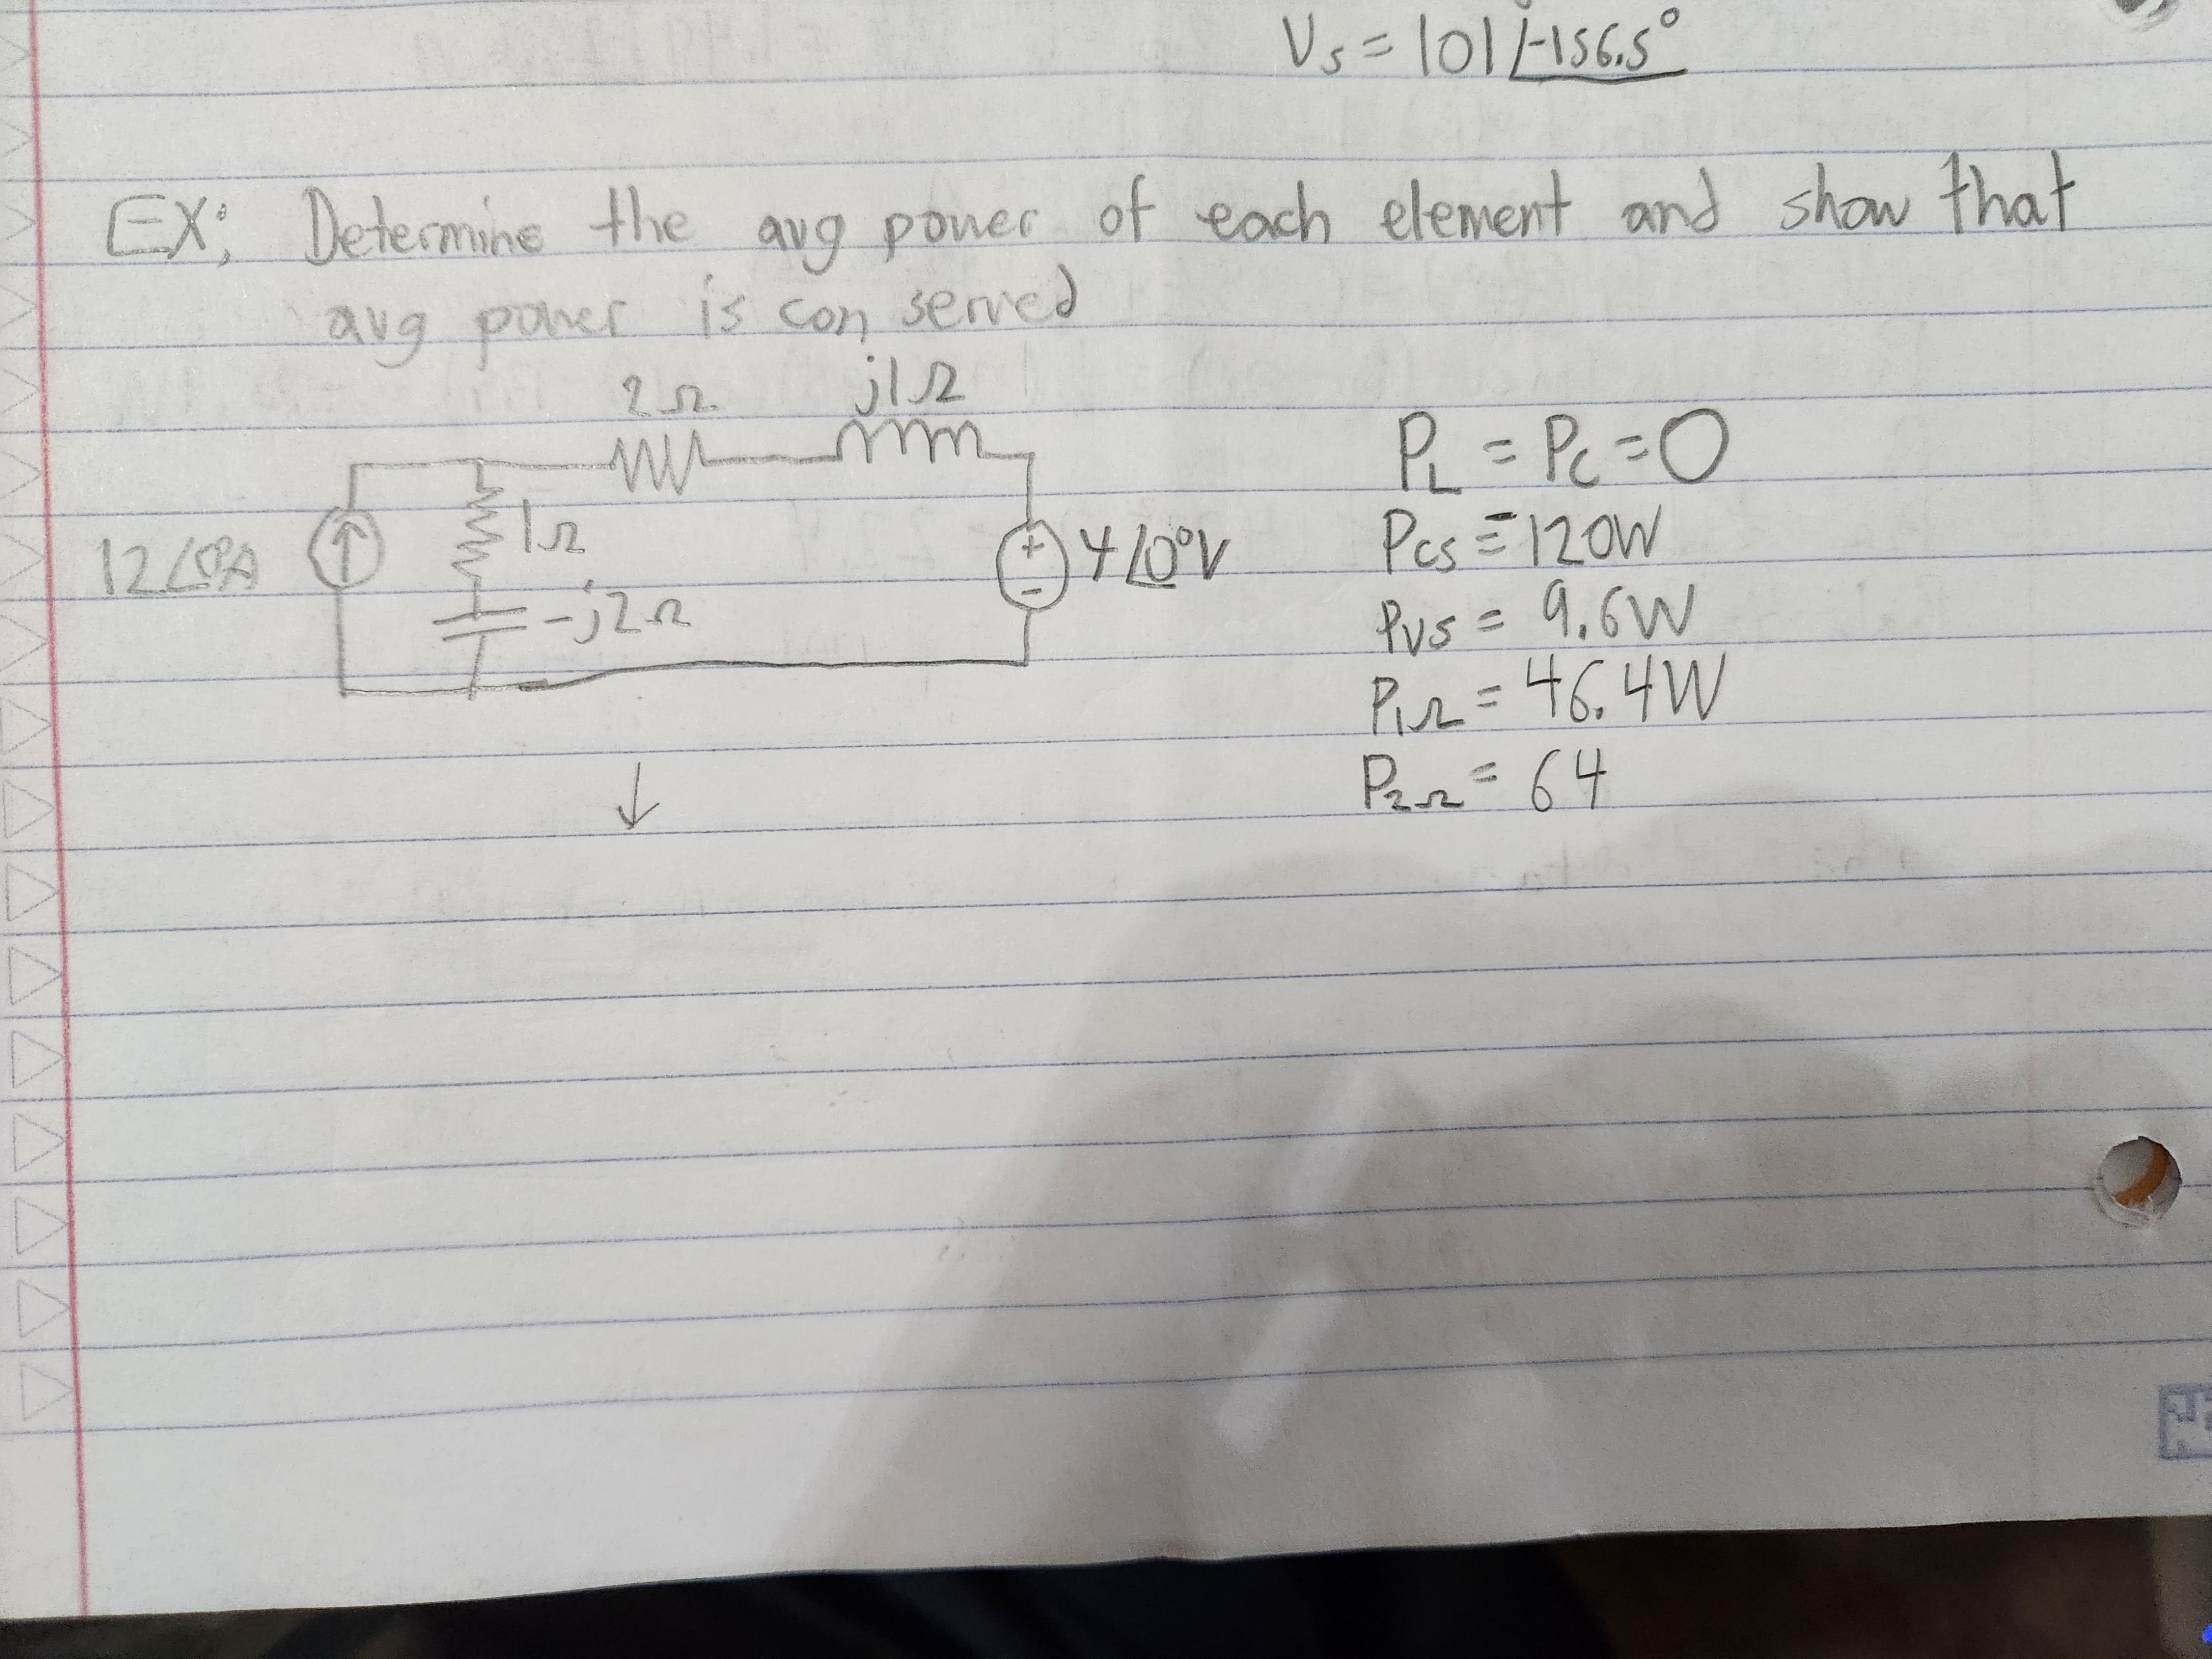 Vs = 101∠-156.5°
EX: Determine the avg power of each element and show that
avg power is con served
2Ω
j1Ω
12∠0°A
1Ω
-j2Ω
+
-
4∠0°V
↓
PL = PC = 0
PCS = -120W
PVS = 9.6W
P1Ω = 46.4W
P2Ω = 64